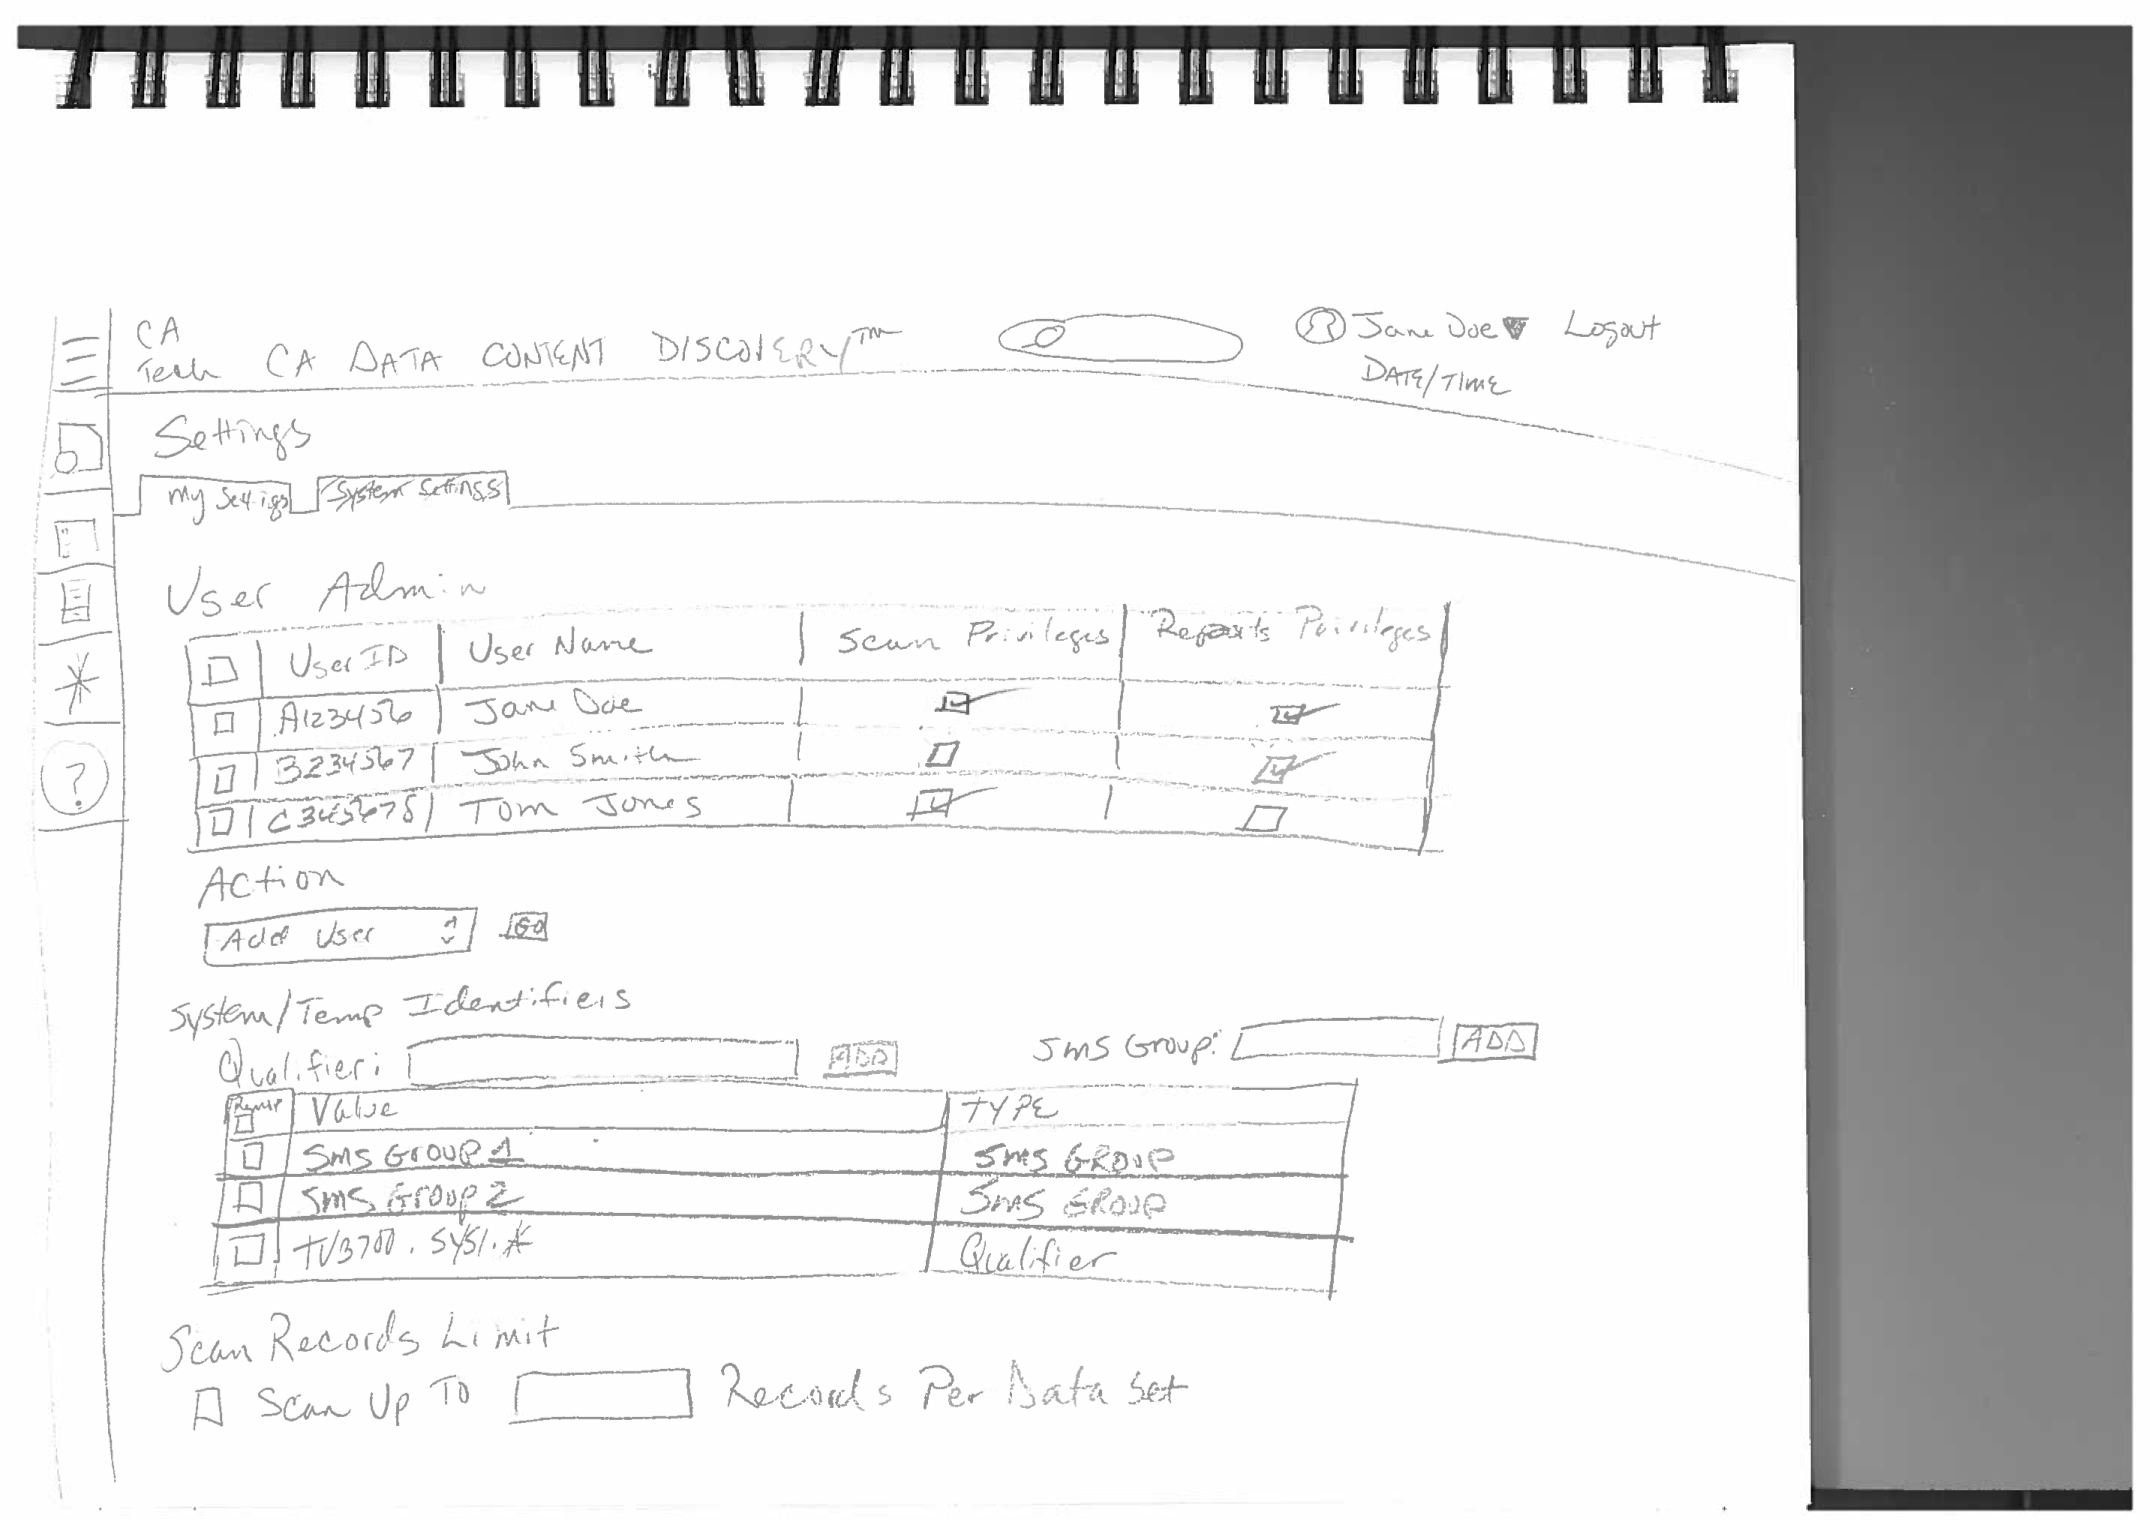 CA
Tech CA DATA CONTENT DISCOVERY™
Jane Doe Logout
DATE/TIME
Settings
My Settigs System Settings
User Admin
User ID User Name Scan Privileges Reports Privileges
A123456 Jane Doe
B234567 John Smith
C345678 Tom Jones
Action
Add User GO
System/Temp Identifiers
Qualifier: ADD SMS Group: ADD
Value TYPE
SMS Group 1 SMS GROUP
SMS Group 2 SMS GROUP
TV3700.SYS1.* Qualifier
Scan Records Limit
Scan Up To Records Per Data Set
?